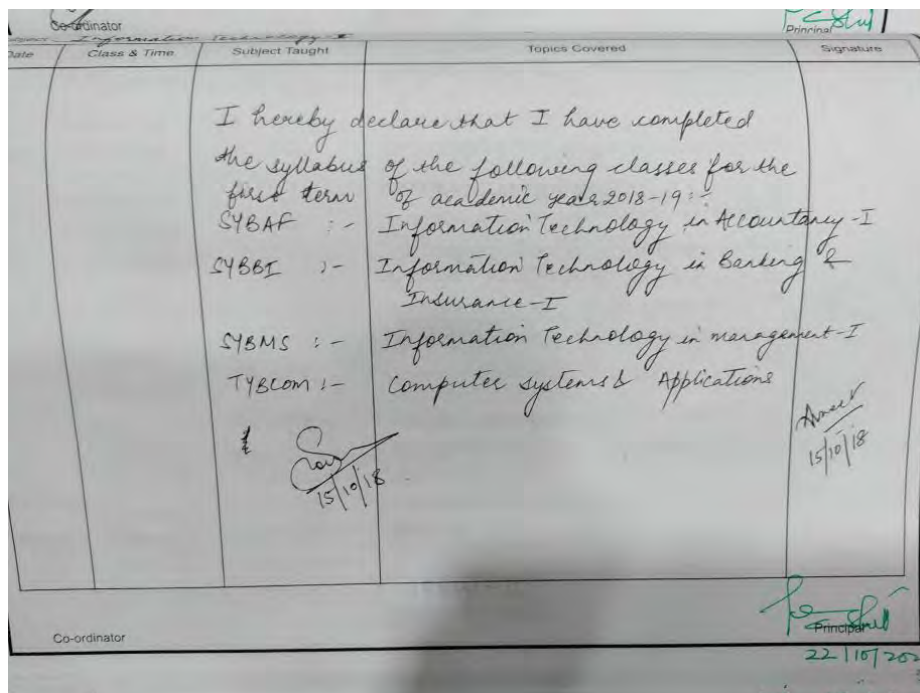 Co-ordinator
Principal
Information Technology-I
Date Class & Time Subject Taught Topics Covered Signature
I hereby declare that I have completed
the syllabus of the following classes for the
first term of academic year 2018-19:-
SYBAF :- Information Technology in Accountancy-I
SYBBI :- Information Technology in Banking &
Insurance-I
SYBMS :- Information Technology in management-I
TYBCOM :- Computer systems & Applications
15/10/18
15/10/18
Co-ordinator
Principal
22/10/202